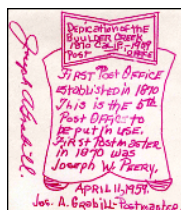 Dedication of the
Boulder Creek
1870 Calif.-1959
Post Office
First Post Office
established in 1870
This is the 5th
Post Office to
be put in use.
First Postmaster
in 1870 was
Joseph W. Peery.
April 11, 1959.
Jos. A. Grahill-Postmaster